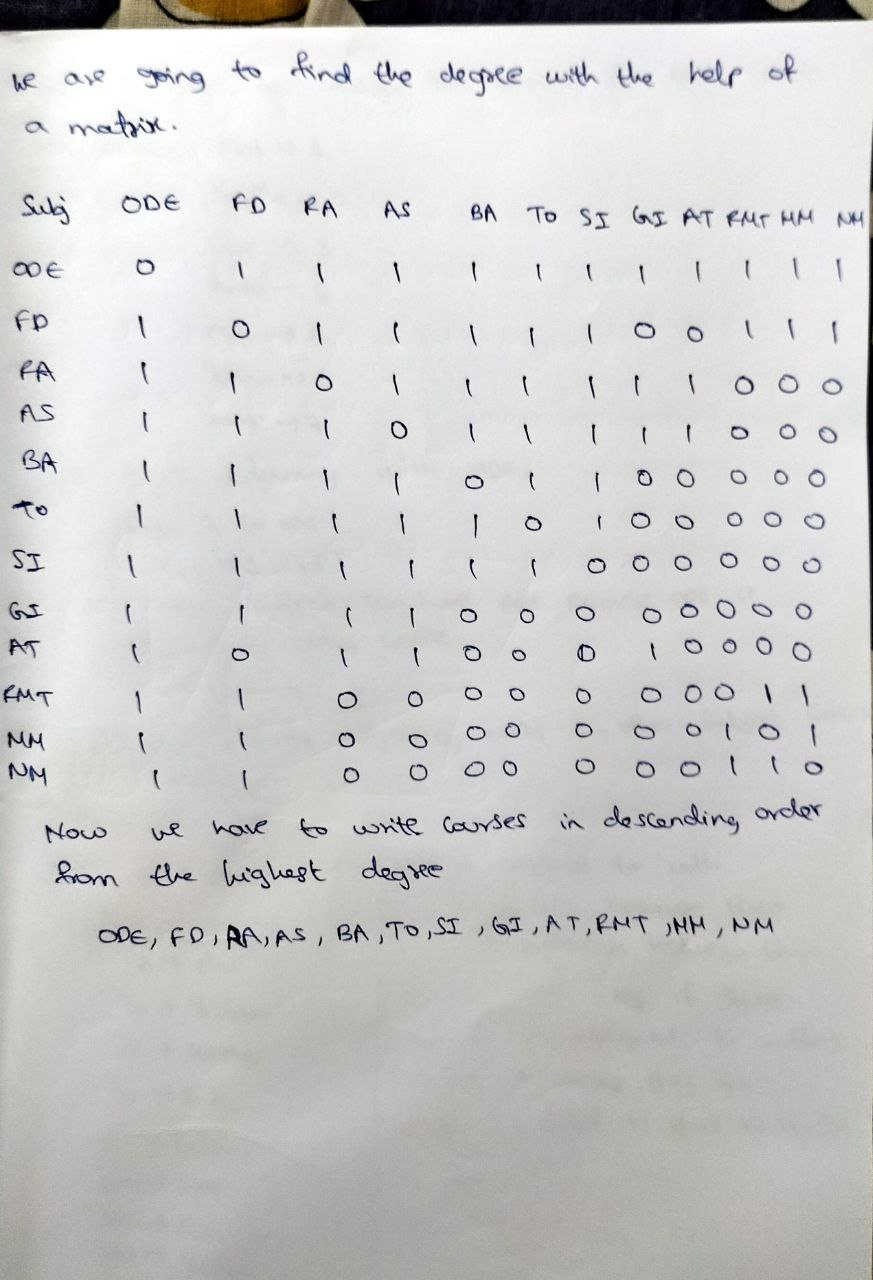 we are going to find the degree with the help of
a matrix.
Subj ODE FD RA AS BA TO SI GI AT RMT MM NM
ODE 0 1 1 1 1 1 1 1 1 1 1 1
FD 1 0 1 1 1 1 1 0 0 1 1 1
RA 1 1 0 1 1 1 1 1 1 0 0 0
AS 1 1 1 0 1 1 1 1 1 0 0 0
BA 1 1 1 1 0 1 1 0 0 0 0 0
TO 1 1 1 1 1 0 1 0 0 0 0 0
SI 1 1 1 1 1 1 0 0 0 0 0 0
GI 1 1 1 1 0 0 0 0 0 0 0 0
AT 1 0 1 1 0 0 0 1 0 0 0 0
RMT 1 1 0 0 0 0 0 0 0 0 1 1
MM 1 1 0 0 0 0 0 0 0 1 0 1
NM 1 1 0 0 0 0 0 0 0 1 1 0
Now we have to write courses in descending order
from the highest degree
ODE, FD, RA, AS, BA, TO, SI, GI, AT, RMT, MM, NM